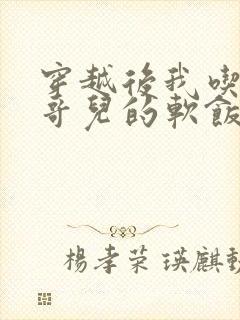 穿越後我喫
哥兒的軟飯
楊孝荣 瑛麒